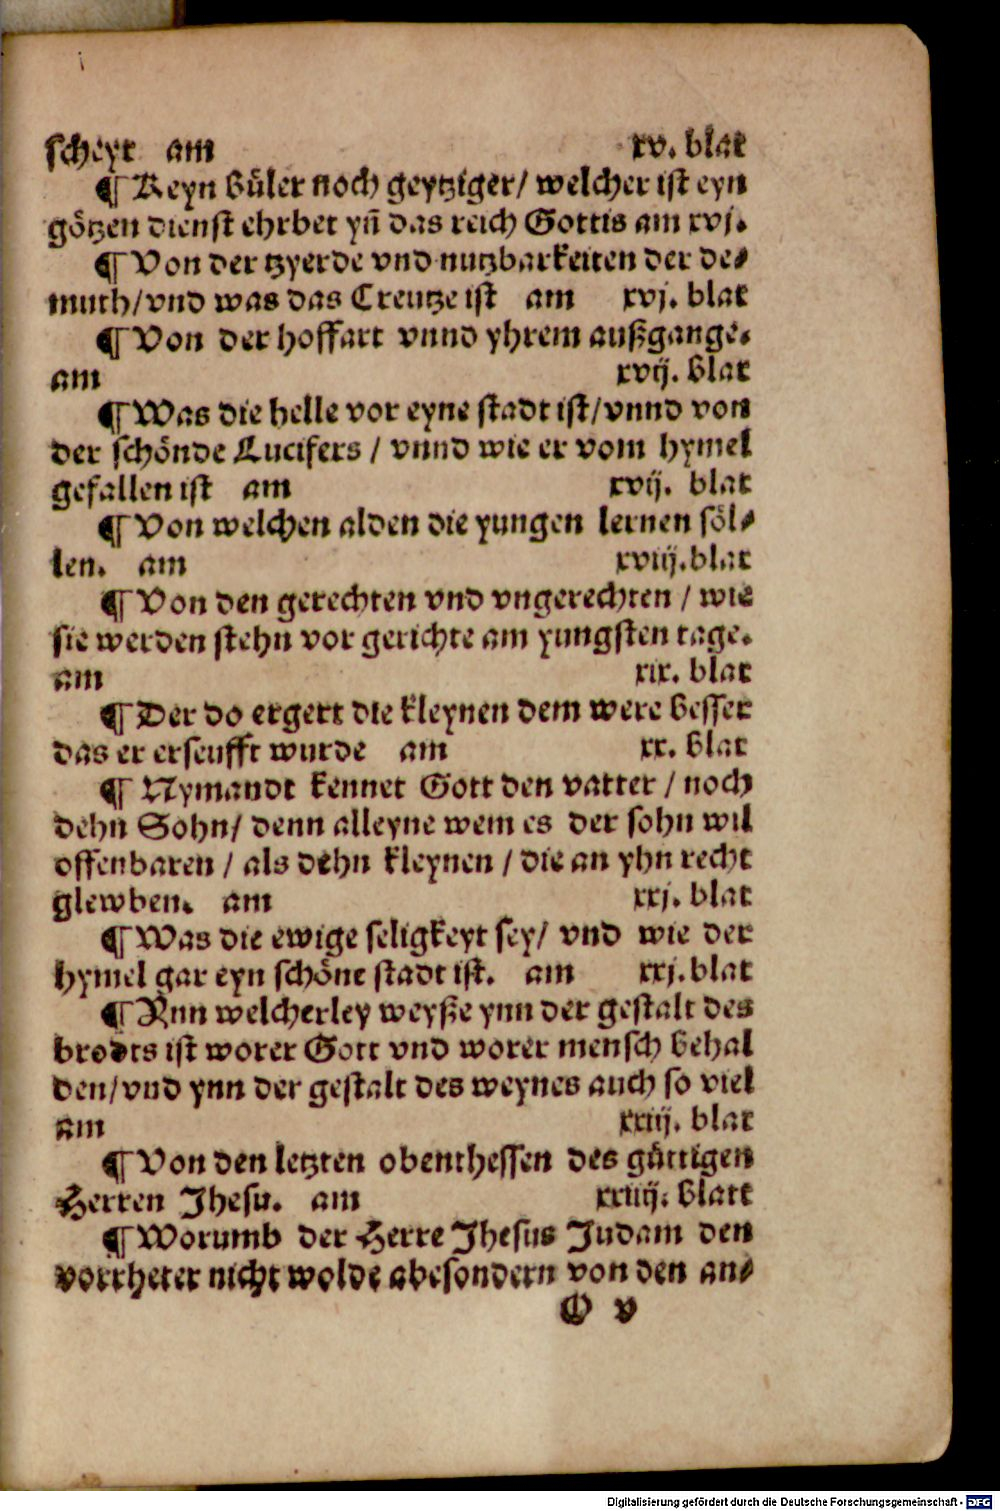 scheyt am xv. blat
¶ Keyn bůler noch geytziger/ welcher ist eyn
götzen dienst ehrbet yñ das reich Gottis am xvj.
¶ Von der tzyerde vnd nutzbarkeiten der de⸗
muth/vnd was das Creutze ist am xvj. blat
¶ Von der hoffart vnnd yhrem außgange.
am xvij. blat
¶ Was die helle vor eyne stadt ist/vnnd von
der schönde Lucifers / vnnd wie er vom hymel
gefallen ist am xvij. blat
¶ Von welchen alden die yungen lernen söl⸗
len. am xviij.blat
¶ Von den gerechten vnd vngerechten / wie
sie werden stehn vor gerichte am yungsten tage.
am xix. blat
¶ Der do ergert die kleynen dem were besser
das er erseufft wurde am xx. blat
¶ Nymandt kennet Gott den vatter / noch
dehn Sohn/ denn alleyne wem es der sohn wil
offenbaren / als dehn kleynen / die an yhn recht
glewben. am xxj. blat
¶ Was die ewige seligkeyt sey/ vnd wie der
hymel gar eyn schöne stadt ist. am xxj. blat
¶ Ynn welcherley weyße ynn der gestalt des
brodts ist worer Gott vnd worer mensch behal
den/vnd ynn der gestalt des weynes auch so viel
am xxiij. blat
¶ Von den letzten obenthessen des gůttigen
Herren Jhesu. am xxiiij. blatt
¶ Worumb der Herre Jhesus Judam den
vorrheter nicht wolde abesondern von den an⸗
O v
Digitalisierung gefördert durch die Deutsche Forschungsgemeinschaft - DFG